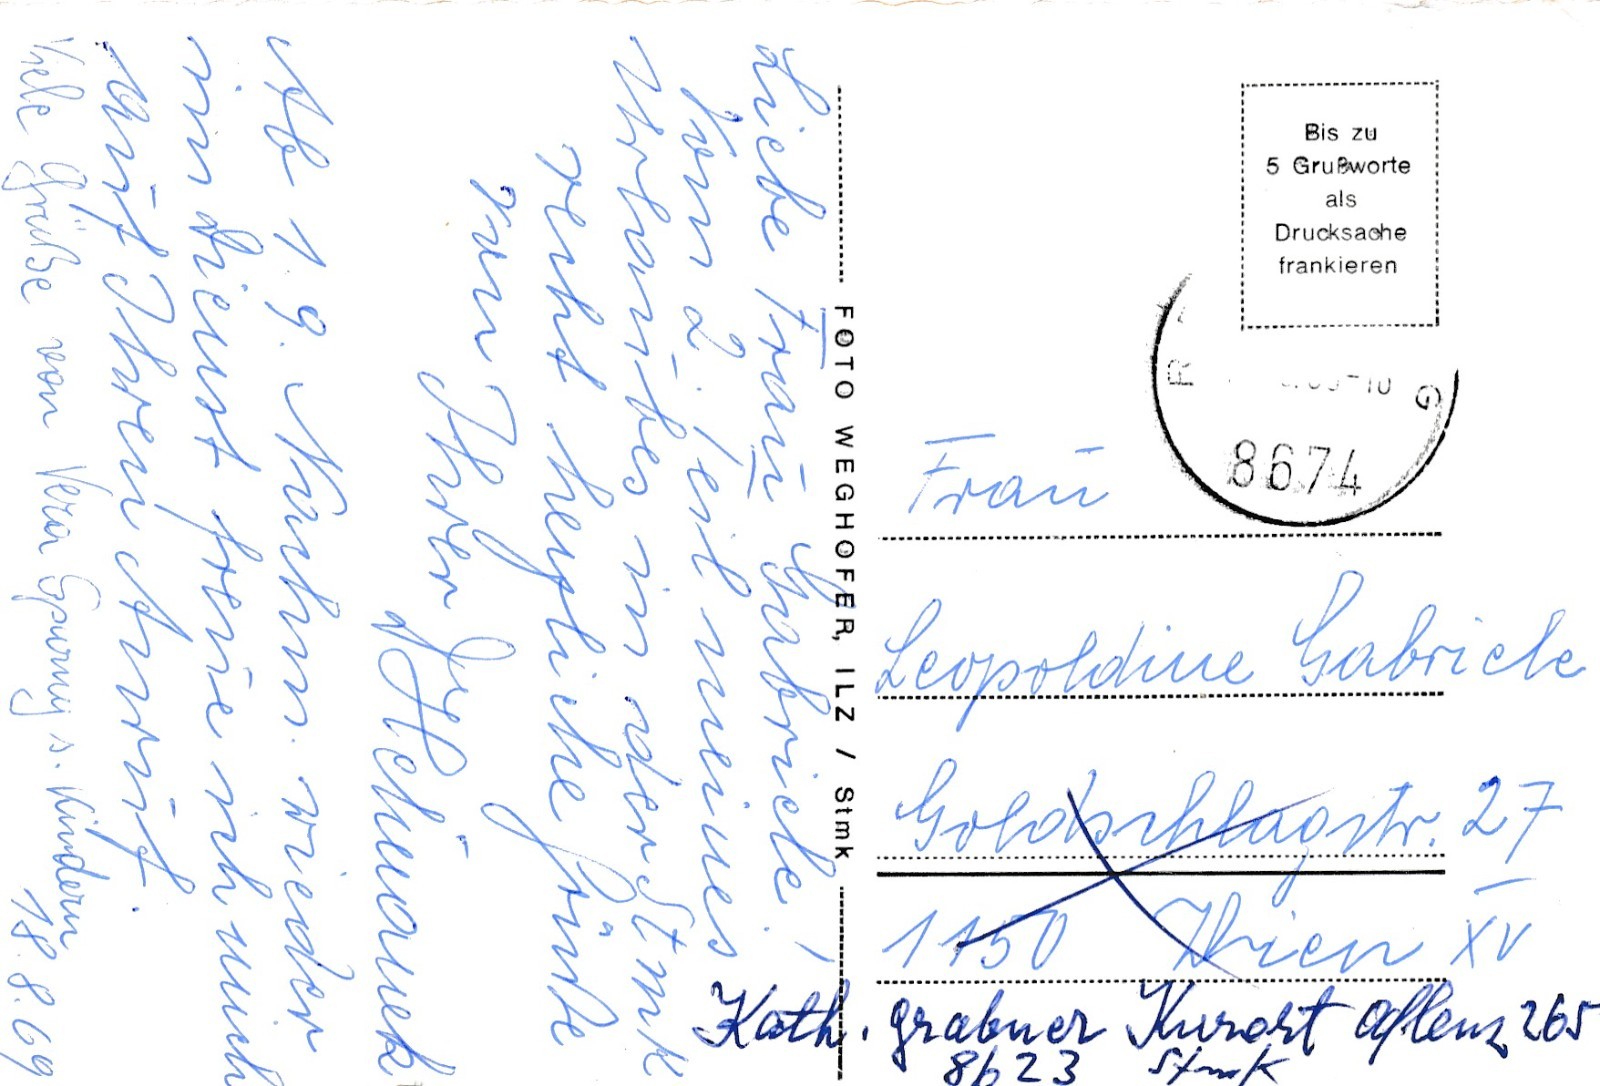 Liebe Frau Gabriele!
Vom 2. Teil meines
Urlaubes in der Stmk
recht herzliche Grüße
von Ihrer
Ab 1.9. Nachm. wieder
im Dienst freue ich mich
auf Ihren Anruf.
Viele Grüße von Vera s. Kindern
18.8.69
FOTO WEGHOFER, ILZ / Stmk
Bis zu
5 Grußworte
als
Drucksache
frankieren
8674
Frau
Leopoldine Gabriele
Goldschlagstr. 27
1150 Wien XV
Kath. Grabner Kurort Aflenz 265
8623 Stmk